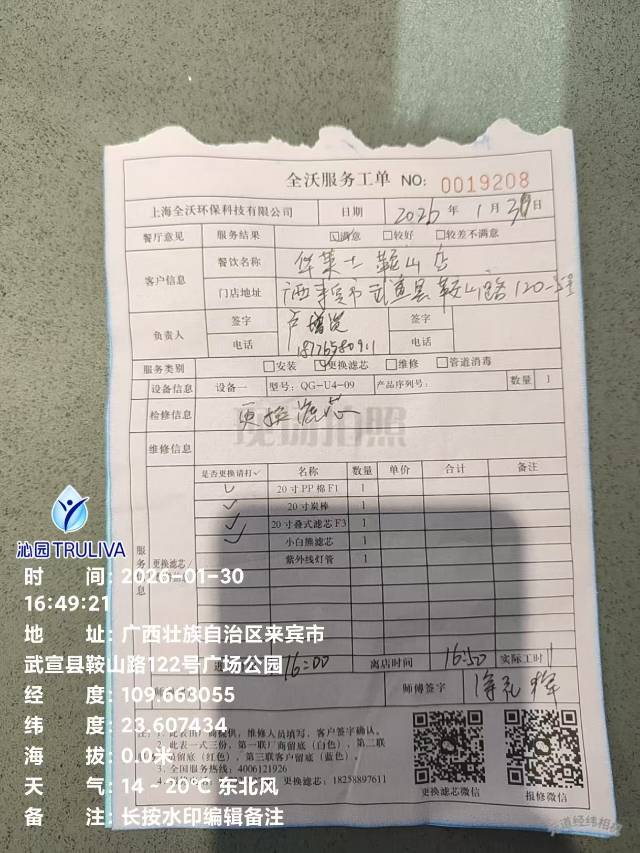 全沃服务工单 NO: 0019208
上海全沃环保科技有限公司 日期 2026年1月30日
餐厅意见 服务结果 ☑满意 □较好 □较差不满意
客户信息 餐饮名称 华莱士鞍山店
门店地址 广西来宾市武宣县鞍山路120-5号
负责人 签字 签字
电话 18776580911 电话
服务类别 □安装 ☑更换滤芯 □维修 □管道消毒
设备信息 设备一 型号: QG-U4-09 产品序列号: 数量 1
检修信息 更换滤芯
现场拍照
维修信息
是否更换请打✓ 名称 数量 单价 合计 备注
✓ 20寸PP棉F1 1
✓ 20寸炭棒 1
✓ 20寸叠式滤芯F3 1
✓ 小白熊滤芯 1
紫外线灯管 1
服务信息 更换滤芯
16:00 离店时间 16:50 实际工时
师傅签字
沁园TRULIVA
时 间: 2026-01-30
16:49:21
地 址: 广西壮族自治区来宾市
武宣县鞍山路122号广场公园
经 度: 109.663055
纬 度: 23.607434
海 拔: 0.0米
天 气: 14~20℃ 东北风
备 注: 长按水印编辑备注
提供，维修人员填写，客户签字确认。
2. 此表一式三份，第一联厂商留底（白色），第二联
商留底（红色），第三联客户留底（蓝色）。
3. 全国服务热线: 4006121926
更换滤芯: 18258897611
更换滤芯微信 报修微信
道经纬相机